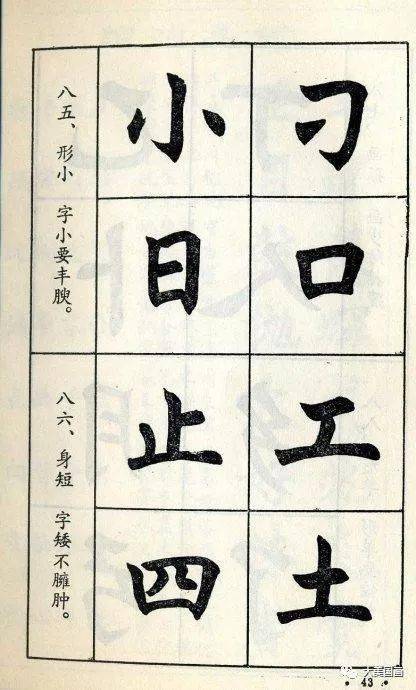 八五、形小 字小要丰腴。
小刁
日口
八六、身短 字矮不臃肿。
止工
四土
43
大美国画